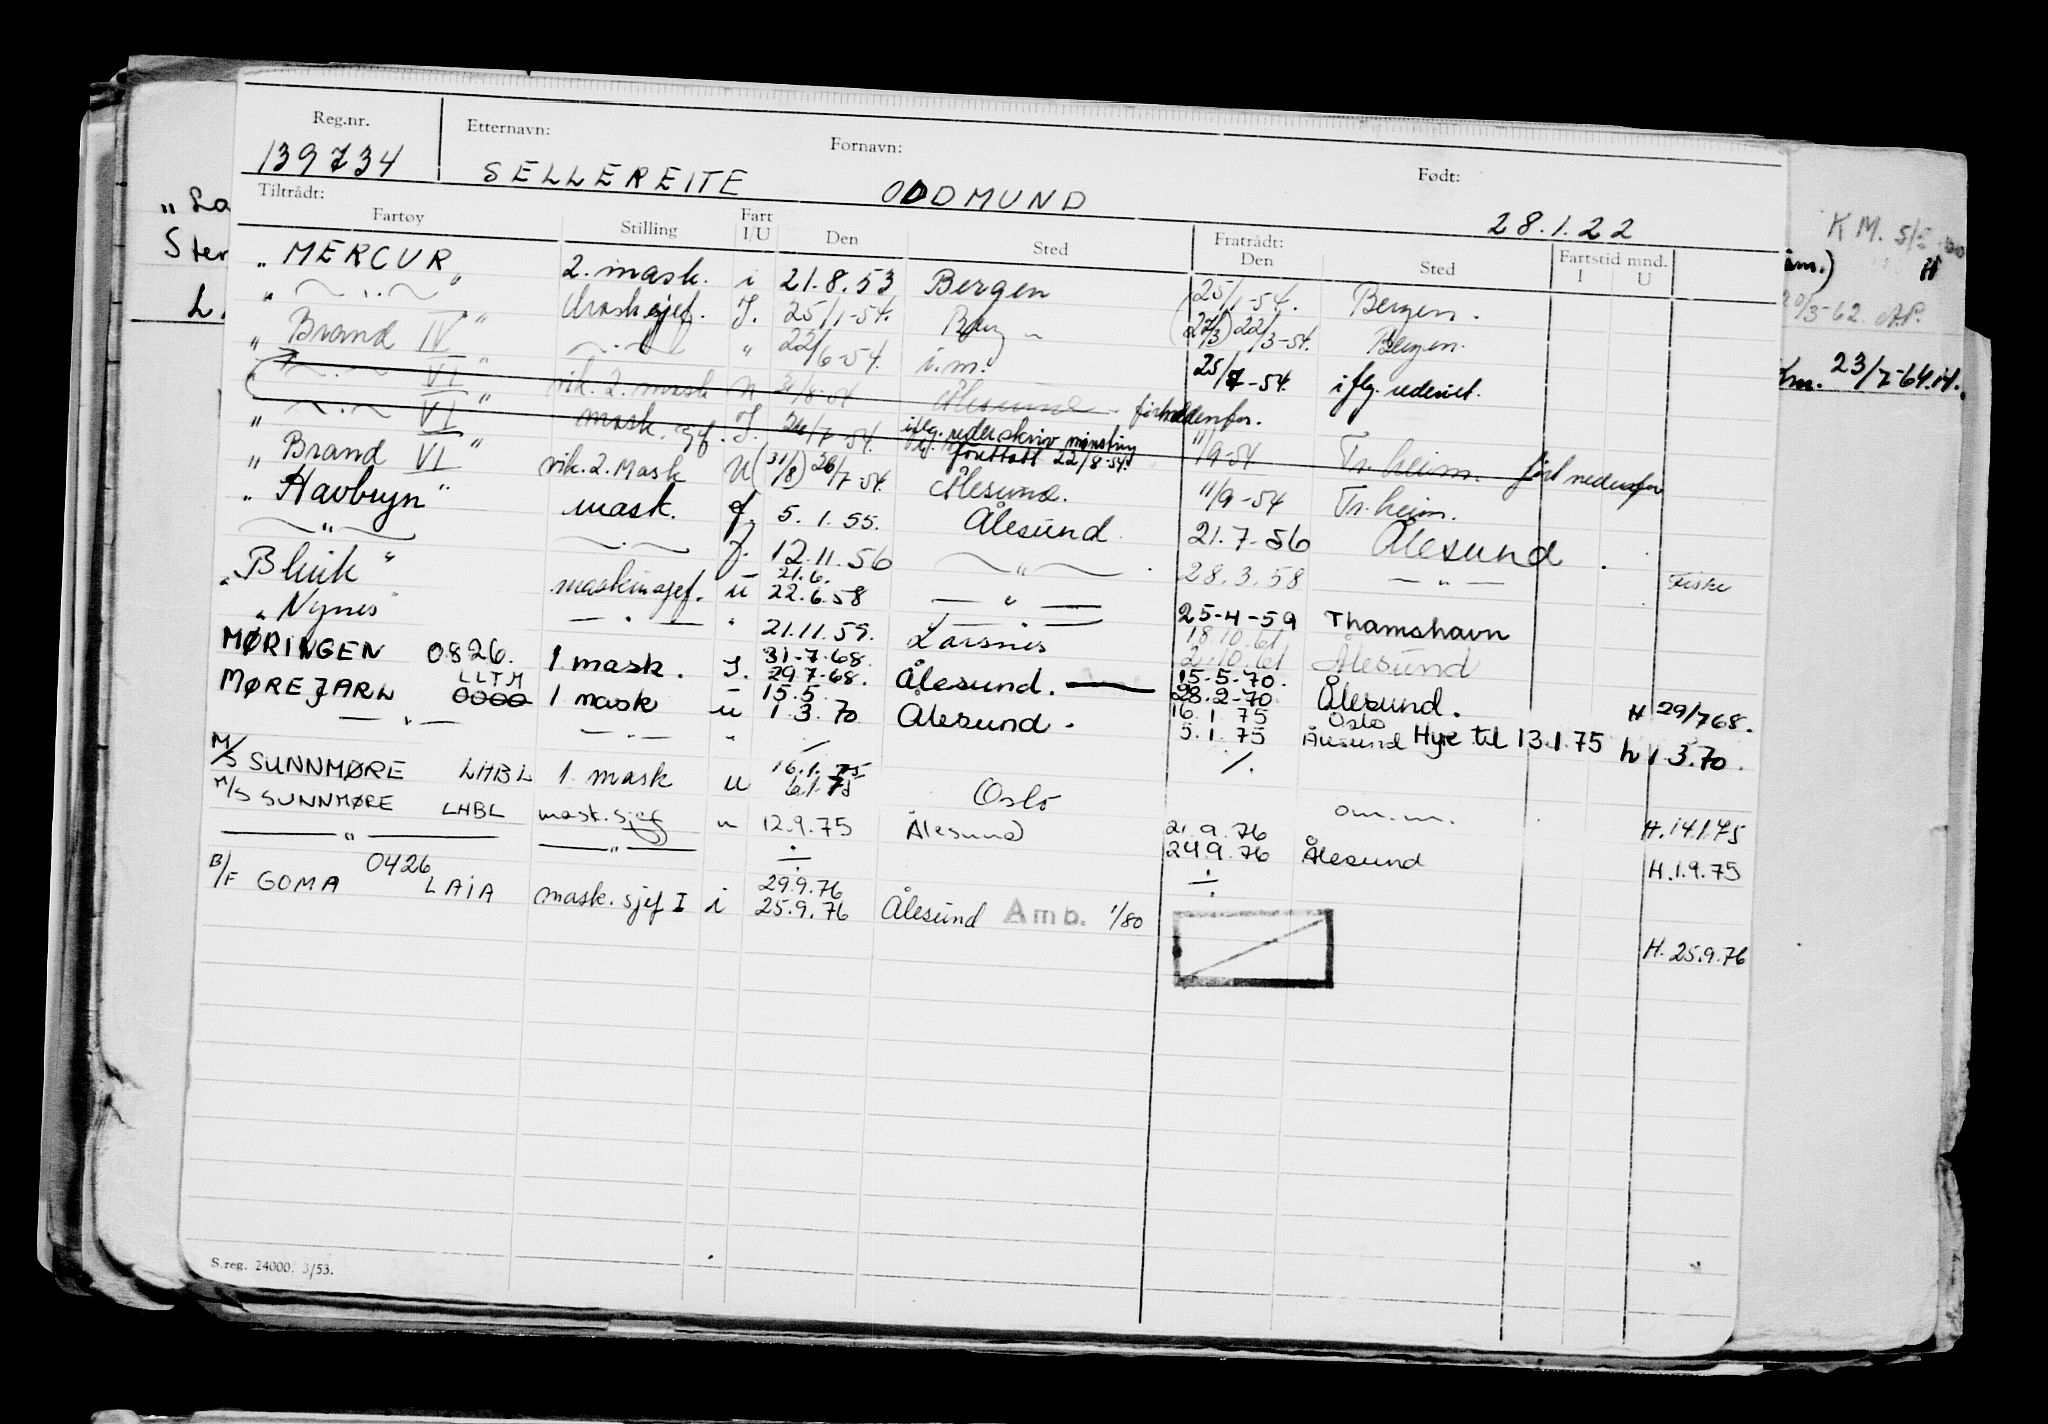 Reg.nr. Etternavn: Fornavn: Født:
139734 SELLEREITE ODDMUND 28.1.22
Tiltrådt: Fratrådt:
Fartøy Stilling Fart I/U Den Sted Den Sted Fartstid mnd. I U
„ MERCUR „ 2. mask. i 21.8.53 Bergen 25/1-54. Bergen.
„ — „ — „ Masksjef. I. 25/1-54. Berg - (27/3) 22/3-54. Bergen.
„ Brand IV „ — „ — „ 22/6-54. i.m. 25/7-54. iflg. rederiet.
„ — „ — VI „ vik. 2. mask U 31/8-54 Ålesund.ført nedenfor.
„ — „ — VI mask. sjef. I. 26/7-54. iflg. reder.skriv mønstring foretatt 22/8-54. 11/9-54 Tr.heim. ført nedenfor
„ Brand VI „ vik. 2. Mask U (31/8) 26/7-54. Ålesund. 11/9-54 Tr.heim.
„ Havbryn „ mask. f. 5.1.55. Ålesund. 21.7-56 Ålesund.
— „ — — „ — f. 12.11.56 — „ — 28.3.58 — „ — Fiske
„ Blink „ maskinsjef. u 21.6. 22.6.58 — „ — 25-4-59 Thamshavn
„ Nynes „ — „ — „ 21.11.59. Larsnes 18.10.61 2.10.61 Ålesund
MØRINGEN 0826. 1 mask. I. 31-7-68. 29.7-68. Ålesund. 15-5-70. 28.2-70. Ålesund. H 29/768.
MØREJARL LLTM 0000 1 mask u 15.5. 1.3.70 Ålesund. 16.1.75 5.1.75 Oslo Ålesund Hyre til 13.1.75 h 1.3.70.
— „ — — „ — „ ⁒ ⁒
M/S SUNNMØRE LHBL 1. mask u 16.1.75 6.1.75 Oslo om.m. H.14.1.75
M/S SUNNMØRE LHBL mask.sjef u 12.9.75 Ålesund 21.9.76 24.9.76 Ålesund H.1.9.75
— „ — — „ — ÷ ÷
B/F GOMA 0426 LAIA mask. sjef I i 29.9.76 25.9.76 Ålesund Amb. 1/80 H. 25.9.76
S.reg. 24000. 3/53.
„ La
Ster
L
K M.
20/3-62. A.P.
Km. 23/7-64.H.